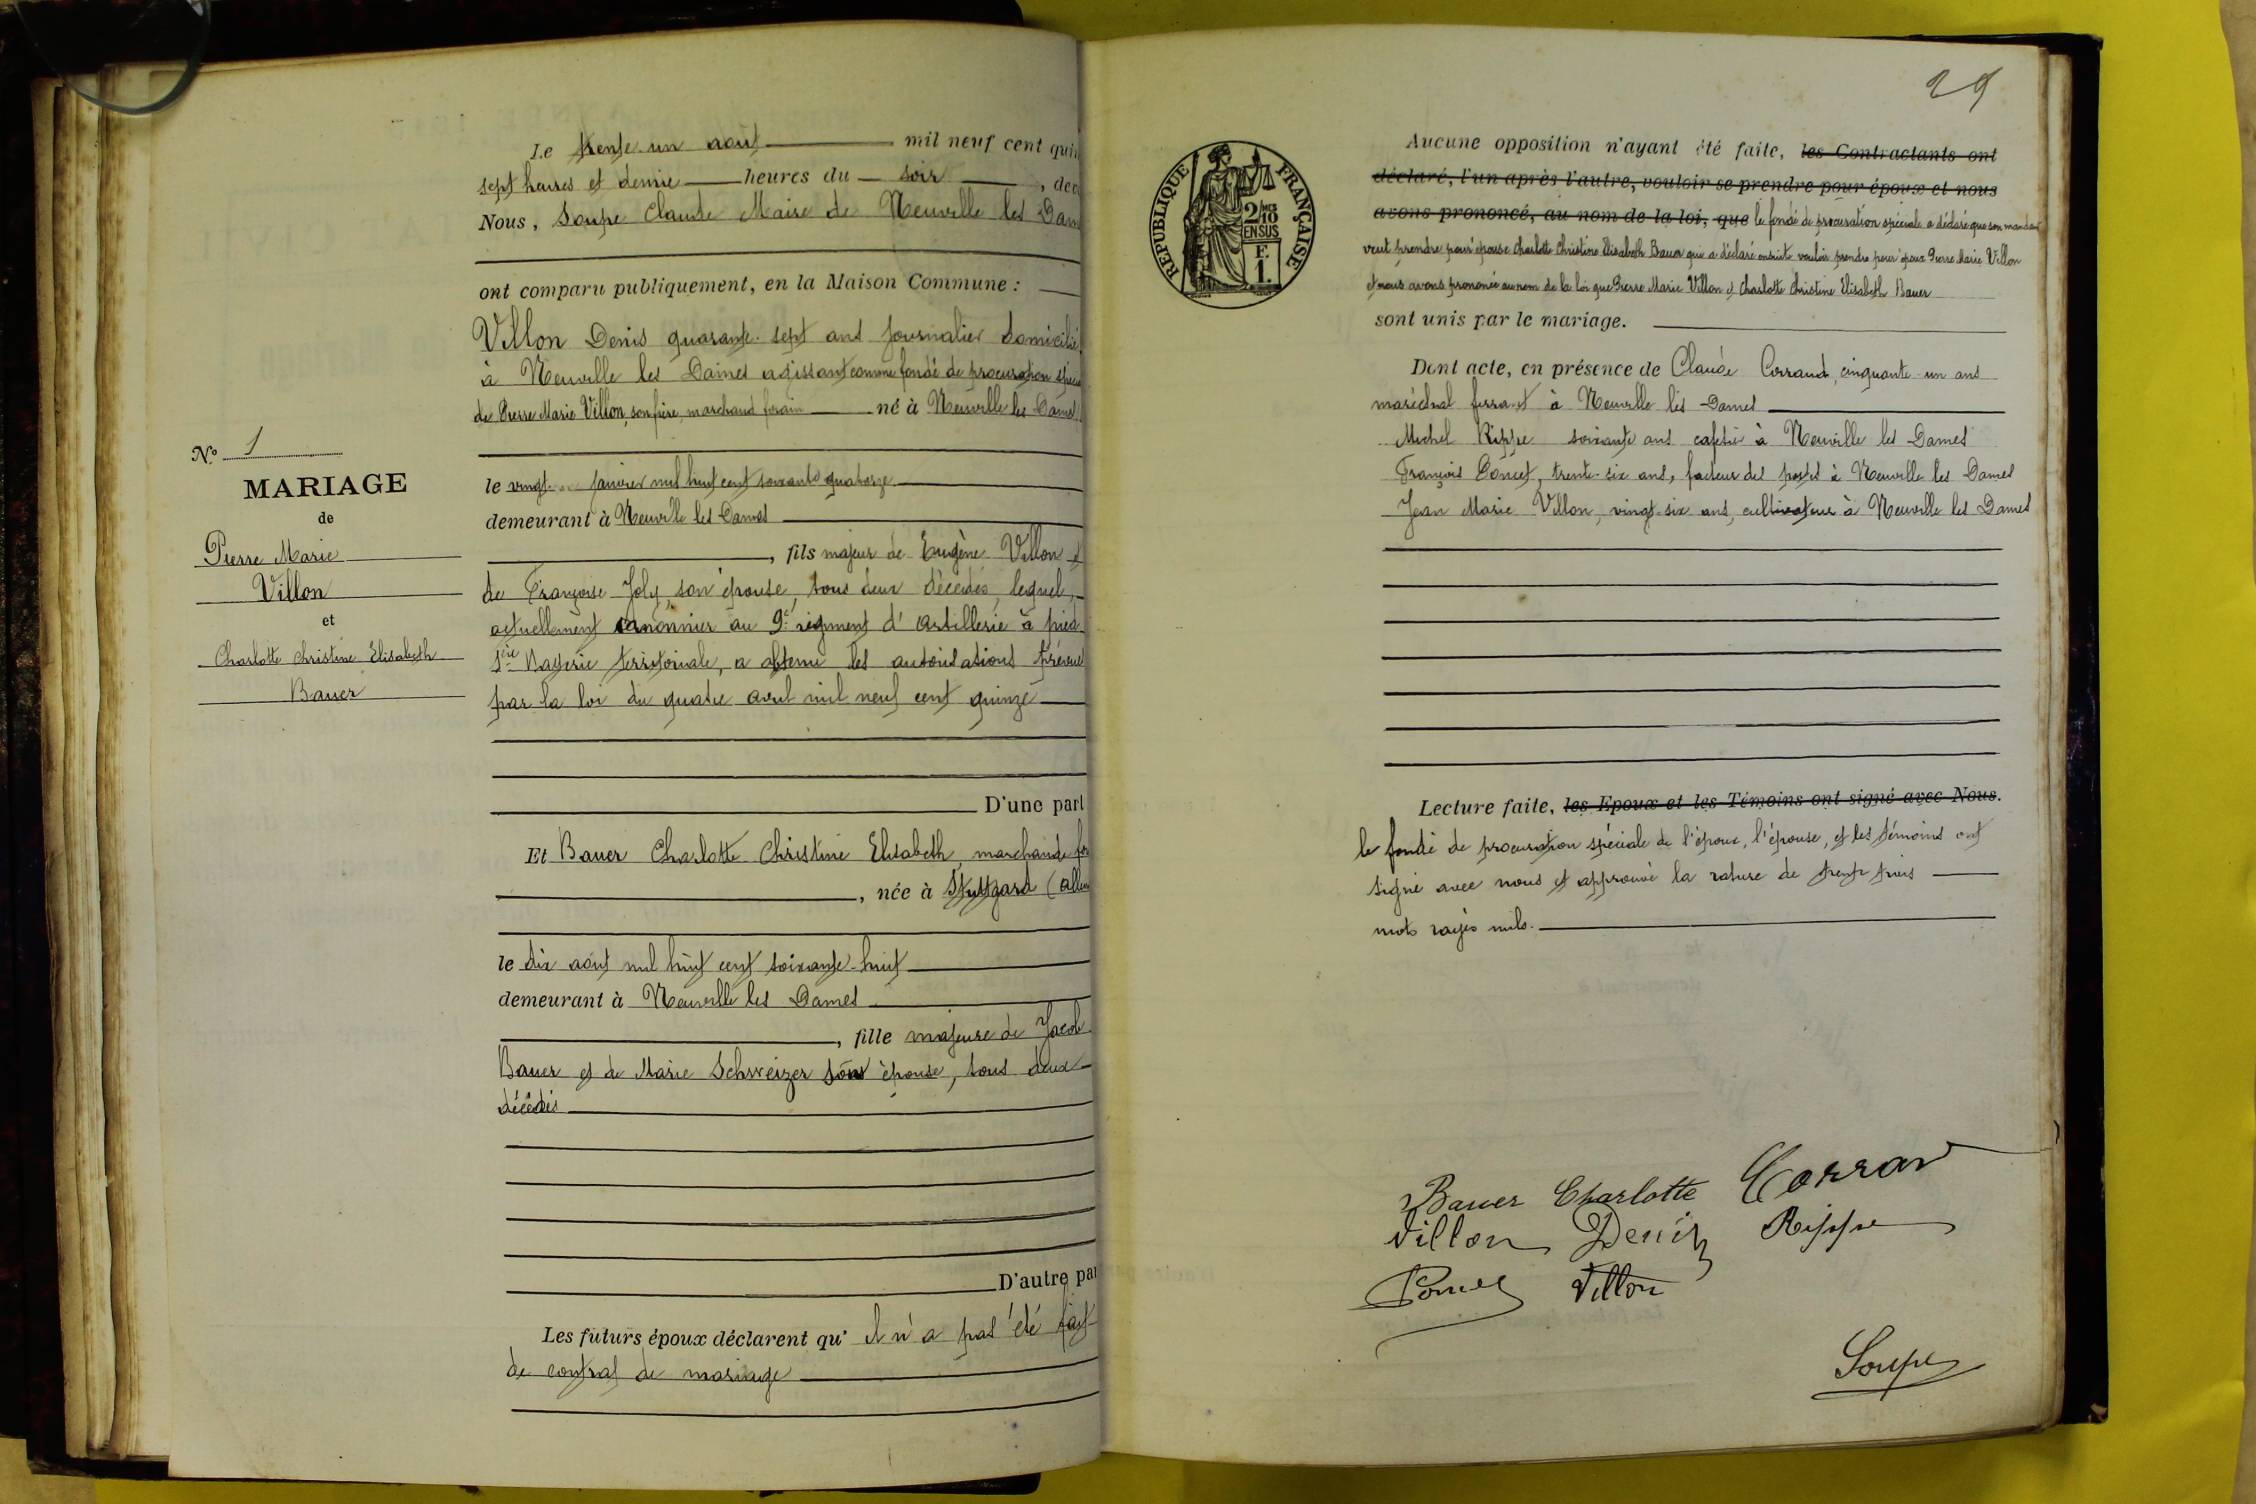 Le trente-un août mil neuf cent quin
sept heures et demie heures du soir, dev
Nous, Soupe Claude Maire de Neuville les Dam
ont comparu publiquement, en la Maison Commune :
Villon Denis quarante-sept ans journalier domicilié
à Neuville les Dames agissant comme fondé de procuration spéc
de Pierre Marie Villon, son frère, marchand forain né à Neuville les Dames
le vingt janvier mil huit cent soixante quatorze
demeurant à Neuville les Dames
, fils majeur de Eugène Villon et
de Françoise Joly, son épouse, tous deux décédés, lequel,
actuellement canonnier au 9e régiment d'artillerie à pied
1ère Batterie territoriale, a obtenu les autorisations prévues
par la loi du quatre avril mil neuf cent quinze
D'une part
Et Bauer Charlotte Christine Elisabeth, marchande for
, née à Stuttgard (Allem
le dix août mil huit cent soixante-huit
demeurant à Neuville les Dames
, fille majeure de Jacob
Bauer et de Marie Schweizer son épouse, tous deux
décédés
D'autre par
Les futurs époux déclarent qu' il n'a pas été fait
de contrat de mariage
N.º 1
MARIAGE
de
Pierre Marie
Villon
et
Charlotte Christine Elisabeth
Bauer
29
RÉPUBLIQUE FRANÇAISE
2/10MES
EN SUS
F.
1.
Aucune opposition n'ayant été faite, les Contractants ont
déclaré, l'un après l'autre, vouloir se prendre pour époux et nous
avons prononcé, au nom de la loi, que le fondé de procuration spéciale a déclaré que son mandant
veut prendre pour épouse Charlotte Christine Elisabeth Bauer qui a déclaré ensuite vouloir prendre pour époux Pierre Marie Villon
et nous avons prononcé au nom de la loi que Pierre Marie Villon et Charlotte Christine Elisabeth Bauer
sont unis par le mariage.
Dont acte, en présence de Claude Corraud, cinquante-un ans
maréchal ferrant à Neuville les Dames
Michel Rippe soixante ans cafetier à Neuville les Dames
François Poncet, trente-six ans, facteur des postes à Neuville les Dames
Jean Marie Villon, vingt-six ans, cultivateur à Neuville les Dames
Lecture faite, les Epoux et les Témoins ont signé avec Nous.
le fondé de procuration spéciale de l'époux, l'épouse, et les témoins ont
signé avec nous et approuvé la rature de trente trois
mots rayés nuls.
Bauer Charlotte Corrau
Villon Denis Rippe
Poncet Villon
Soupe